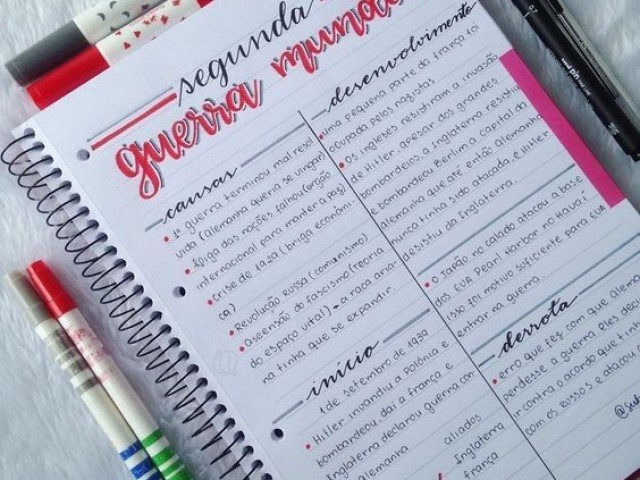 segunda
guerra mund
causas
• 1ª guerra terminou mal resol
vida (alemanha queria se vingar)
• liga das nações falhou (órgão
internacional para manter a paz)
• Crise de 1929 (briga econômi
ca)
• Revolução russa (comunismo)
• Ascensão do fascismo (teoria
do espaço vital) → a raça aria
na tinha que se expandir.
início
1 de setembro de 1939
• Hitler invandiu a Polônia e
bombardeou, daí a frança e
Inglaterra declarou guerra con
alemanha
aliados
Inglaterra
frança
desenvolvimento
• uma pequena parte da frança foi
ocupada pelos nazistas
• Os ingleses resistiram a invasão
de Hitler, apesar dos grandes
bombardeios a Inglaterra resistiu
e bombardeou Berlim a capital da
alemanha que até então alemanha
nunca tinha sido atacada, e Hitler
desistiu da Inglaterra.
• O Japão no calado atacou a base
dos EUA Pearl Harbor no Havaí
isso foi motivo suficiente para EUA
entrar na guerra.
derrota
• erro que fez com que Aleman
perdesse a guerra. Eles
ir contra o acordo que tin
com os russos e atacou